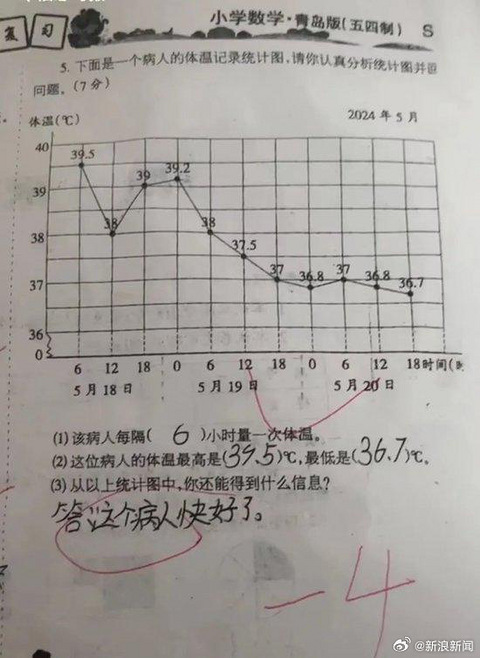 复习
小学数学·青岛版(五四制) S
5. 下面是一个病人的体温记录统计图,请你认真分析统计图并
问题。(7分)
体温(℃)
2024年5月
40
39.5
39.2
39
39
38
38
38
37.5
37
37
37
36.8
36.8
36.7
36
0
6 12 18 0 6 12 18 0 6 12 18 时间(时
5月18日 5月19日 5月20日
(1) 该病人每隔( 6 )小时量一次体温。
(2) 这位病人的体温最高是(39.5)℃,最低是(36.7)℃。
(3) 从以上统计图中,你还能得到什么信息?
答:这个病人快好了。
-4
@新浪新闻